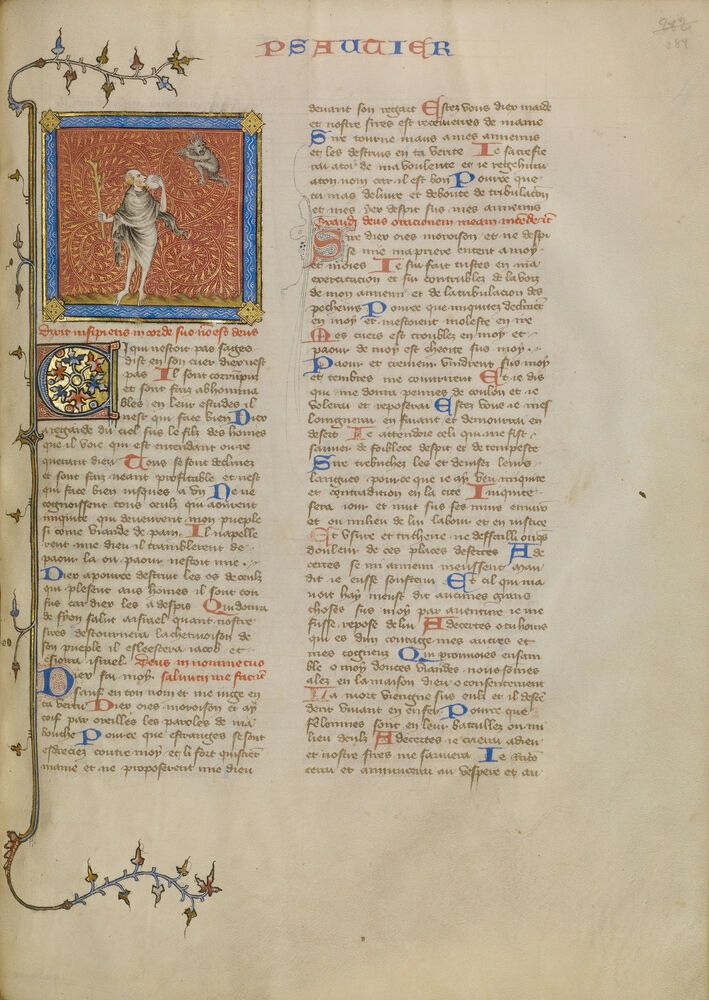 PSAUTIER
282
284
Dixit insipiens in corde suo non est deus
Cilqui nestoit pas sages
dist en son cuer diex nest
pas Il sont corrumpu
et sont faiz abhomina
bles en leurs estudes il
nest qui face bien Diex
a regarde du ciel sus le filz des homes
que il voie qui est entendant ou re
querant dieu Touz se sont declinez
et sont faiz neant profitable et nest
qui face bien iusques a un Ne
cognoissent touz ceulz qui
iniquite qui deveurent mon pueple
si come viande de pain Il napelle
rent mie dieu il tramblerent de
paour la ou paour nestoit mie
Diex a pource destruit les os de ceulz
qui plesent aus homes il sont con
fus car diex les a despis Qui donra
de syon salut a israel quant nostre
sires destournera la chetivoison de
son pueple il esleescera iacob et
israel Deus in nomine tuo
Diex fai moy saluum me fac
sauf en ton nom et me iuge en
ta vertu Diex oies moroison et
par oreilles les paroles de ma
bouche Pource que estranges se sont
esdreciez contre moy et li fort quistrent
mame et ne proposerent mie dieu
devant son regart Estez vous diex maide
et nostre sires est receveeres de mame
Sire tourne maus a mes annemis
et les destruis en ta verite Ie sacrefie
rai a toi de ma voulente et ie regehirai
a ton nom car il est bon Pource que
tu mas delivre et deboute de tribulacion
et mes despit sus mes annemis
Exaudi deus orationem meam
Sire diex oies moroison et ne despi
se mie ma priere enten a moy
et moies Ie sui fait tristes en ma
exercitacion et sui contriblez de la voiz
de mon annemi et de la tribulacion des
pecheurs Pource que iniquitez declinerent
en moy et mestoient moleste en ire
Mes cuers est troublez en moy et
paour de moy est cheoite sus moy
Paour et cremeur vindrent sus moy
et tenebres me couvrirent Et ie dis
qui me donra pennes de coulon et ie
volerai et reposerai Estez vous ie mes
loingnerai en fuiant et demourrai en
desert Ie attendoie celi qui me fist
sauver de foiblece desperit et de tempeste
Sire trebuchez les et devisez leurs
langues pource que ie ay veu iniquite
et contradition en la cite Iniquite
sera iour et nuit sus ses murs
et ou milieu de li labour et en iustice
Et usure et tricherie ne deffailli onques
de ces places Ade
certes se mi annemi meussent mau
dit ie eusse souffert Et cil qui ma
voit hay meust dit aucunes grans
choses sus moy par aventure ie me
fusse repose de lui Adecertes o tu homs
qui es dun courage mes et
mes cogneuz Qui prennoies ensam
ble o moy douces viandes nous somes
alez en la maison dieu o consentement
La mort viengne sus eulz et il descen
dent vivant en enfer Pource que
felennies sont en leur ou mi
lieu deulz Adecertes ie criai a dieu
et nostre sires me sauvera Ie raco
terai et annuncerai au vespere et au